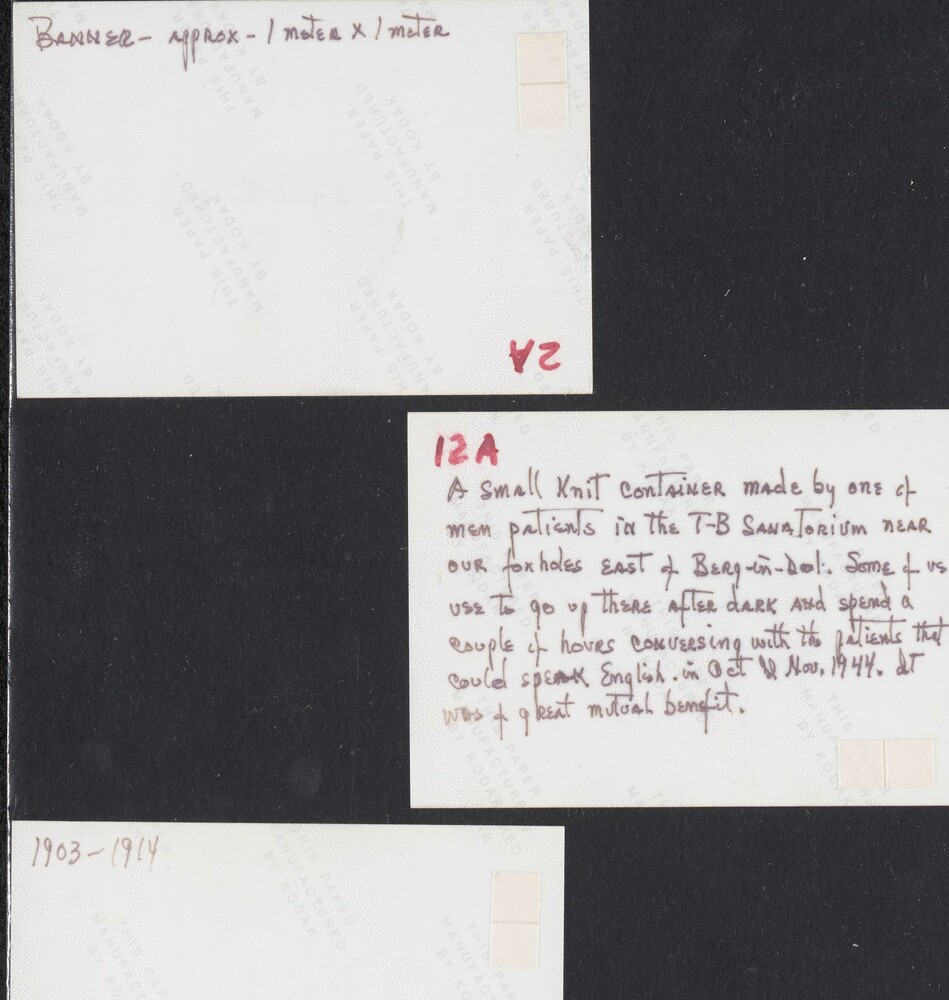 BANNER - approx - 1 meter x 1 meter
2A
12A
A small Knit container made by one of
men patients in the T-B Sanatorium near
our foxholes east of Berg-in-Dal. Some of us
use to go up there after dark and spend a
couple of hours conversing with the patients that
could speak English. in Oct & Nov. 1944. It
was of great mutual benefit.
1903-1914
THIS PAPER
MANUFACTURED
BY KODAK